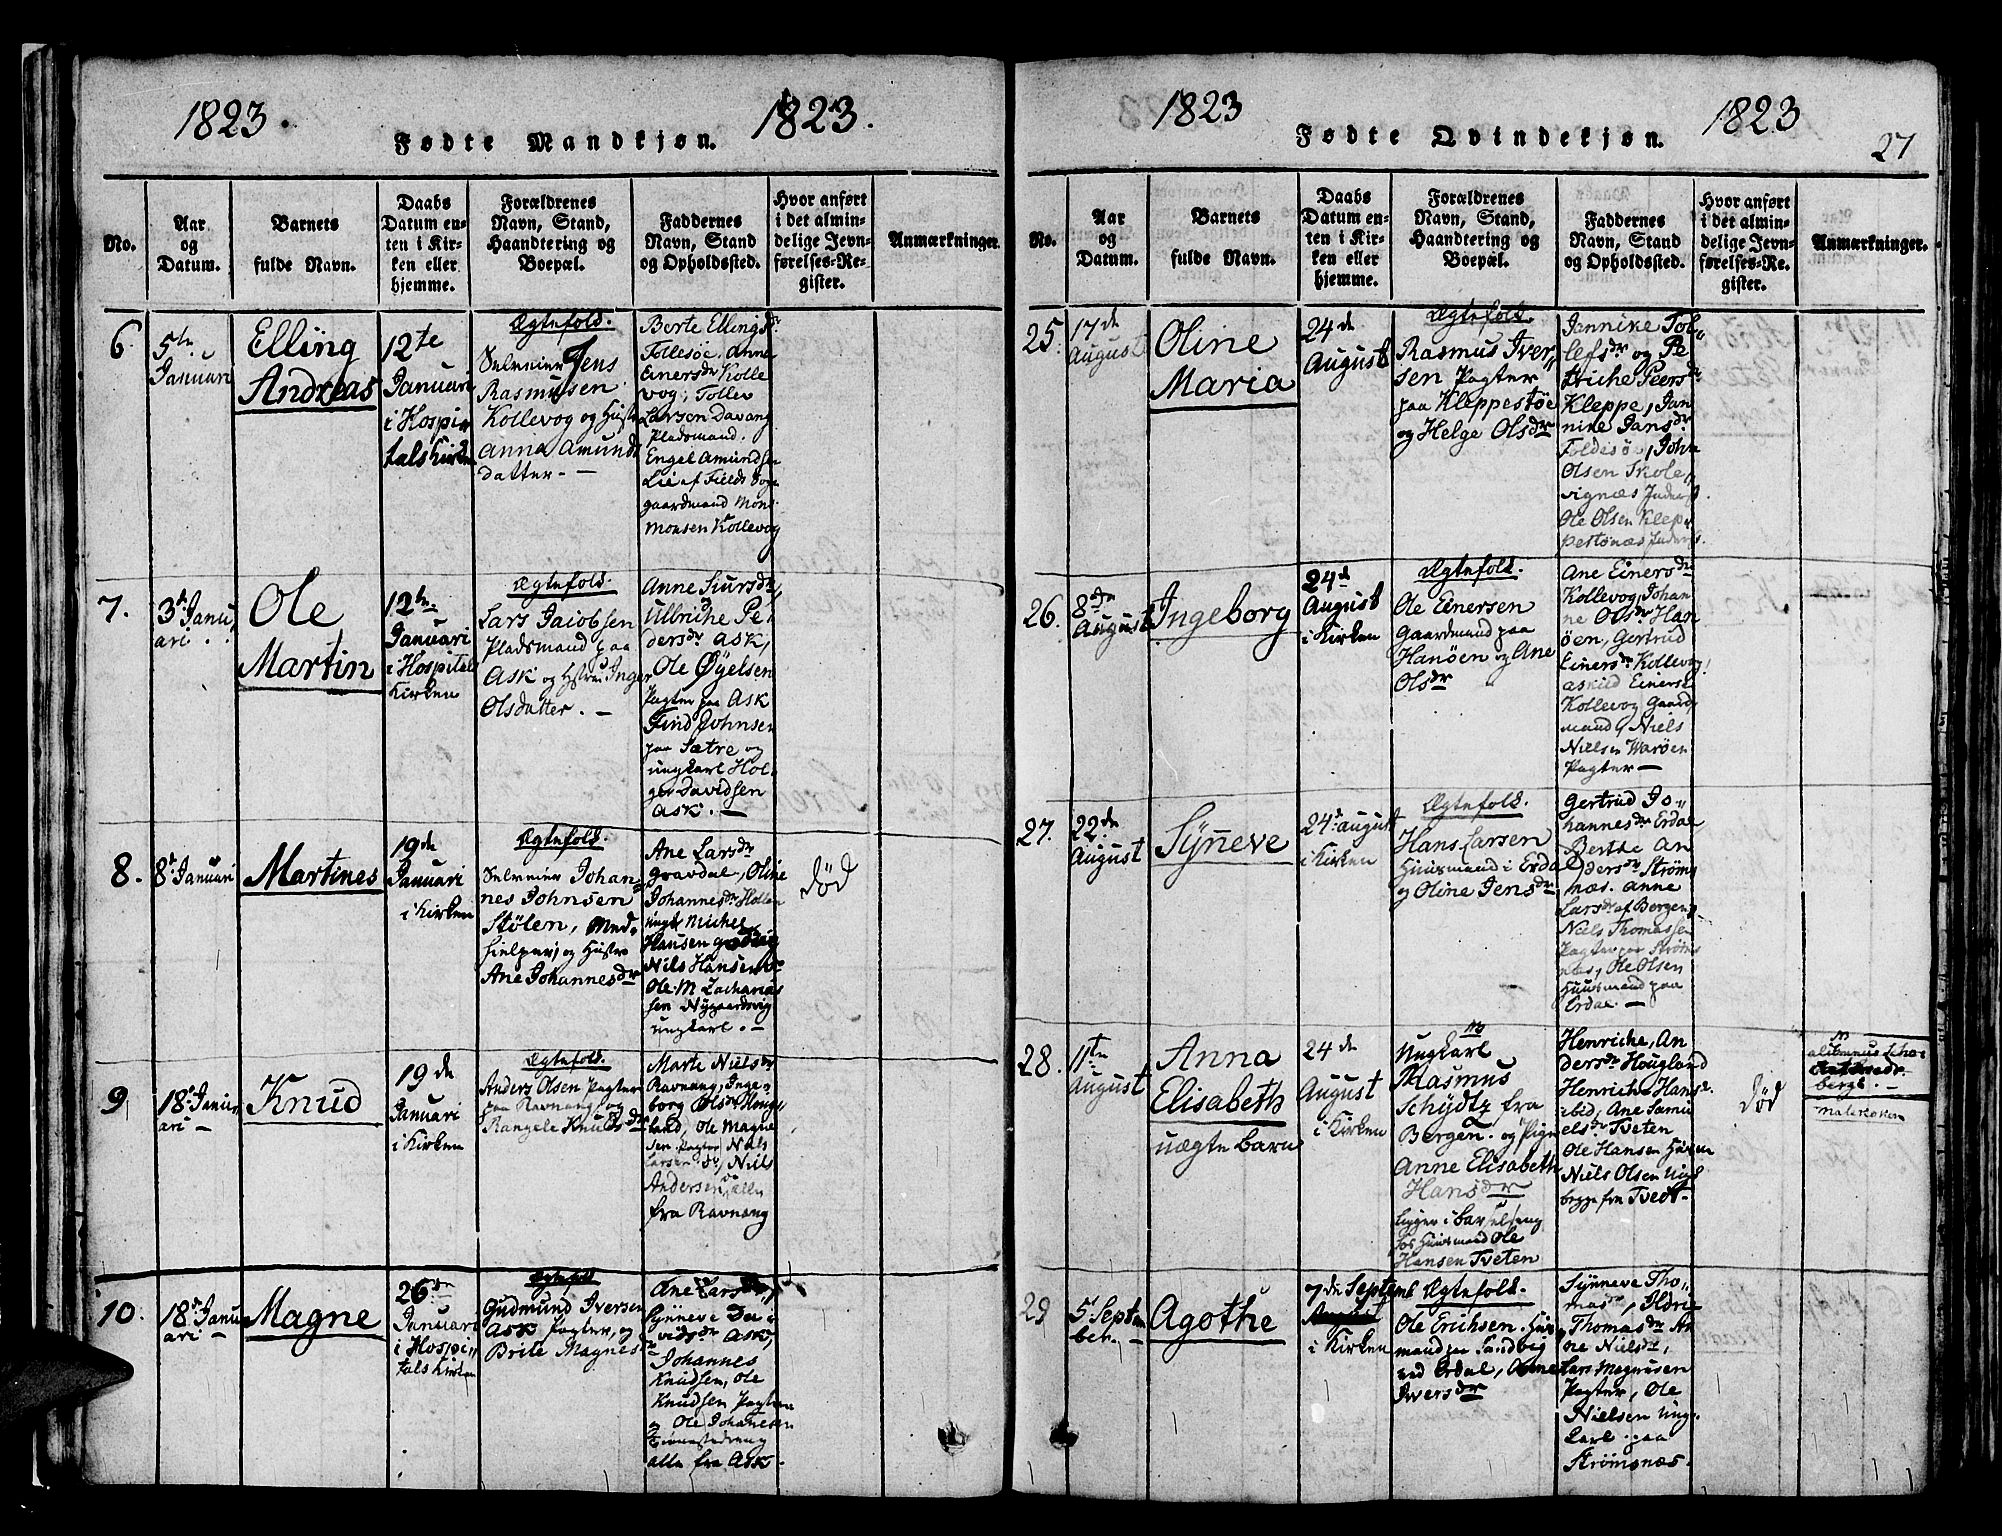 1823.
1823.
Fødte Mandkjøn.
No.
Aar
og
Datum.
Barnets
fulde Navn.
Daabs
Datum en-
ten i Kir-
ken eller
hjemme.
Forældrenes
Navn, Stand,
Haandtering og
Boepæl.
Faddernes
Navn, Stand
og Opholdssted.
Hvor anført
i det almin-
delige Jevn-
førelses-Re-
gister.
Anmærkninger.
6.
5te
Januari
Elling
Andreas
12te
Januari
i Hospi-
tals Kirken
Ægtefolk.
Selveier Jens
Rasmusen
Kollevog og Hustr
Anna Amunds
datter. —
Berte Ellingsdr
Follesøe. Anne
Einersdr Kolle
vog, Tollev
Larsen Davang
Pladsmand.
Engel Amundsen
Lie af Fields Sogn
gaardmand Mons
Monsen Kollevog
7.
3de Janu
ari.
Ole
Martin
12te
Januari
i Hospitals
Kirken
Ægtefolk.
Lars Jacobsen
Pladsmand paa
Ask og Hstru Inger
Olsdatter. —
Anne Siursdr,
Ulbriche Pe
dersdr Ask,
Ole Øyelsen
Pagter paa Ask
Find Johnsen
paa Sætre og
ungkarl Hol-
ger Davidsen
Ask. —
8.
8de Januari
Martines
19de
Januari
i Kirken
Ægtefolk.
Selveier Johan-
nes Johnsen
Stølen, Med-
hielper, og Hustr
Ane Johannesdr
Ane Larsdr
Gravdal, Oline
Johannesdr
Michel
Hansen
Nils Hansen
Ole M Zacharias
sen Nygaardsvig
ungkarl. —
død
9.
18de Janu
ari —
Knud
19de
Januari
i Kirken
Ægtefolk.
Anders Olsen Pagter
paa Ravnang og
Rangele Knudsdr
Marte Nielsdr
Ravnang, Inge-
borg Olsdr Houg
land, Ole Magne
sen Pagter Niels
Larsen do, Niels
Andersen do, alle
fra Ravnang
10.
18de Janu
ari —
Magne
26de
Januari
i Hospi-
tals Kirken
Ægtefolk
Gudmund Iversen
Ask Pagter, og
Brite Magnesdr
Ane Larsdr,
Synneve Da
vidsdr Ask,
Johannes
Knudsen, Ole
Knudsen Pagtere
Ole Johanesen
alle fra Ask.
1823
1823
27
Fødte Qvindekjøn.
No.
Aar
og
Datum.
Barnets
fulde Navn.
Daabs
Datum en-
ten i Kir-
ken eller
hjemme.
Forældrenes
Navn, Stand,
Haandtering og
Boepæl.
Faddernes
Navn, Stand
og Opholdssted.
Hvor anført
i det almin-
delige Jevn-
førelses-Re-
gister.
Anmærkninger.
25.
17de
August
Oline
Maria
24de
August
Ægtefolk.
Rasmus Iver
sen Pagter
paa Kleppestøe
og Helge Olsdr
Jannike Tol
lefsdr og Pe
triche Peersdr
Kleppe, Jan
nike Jansdr
Foldesø, John
Olsen Skole
vignæs
Ole Olsen Klep
pestønæs
26.
8de
August
Ingeborg
24de
August
i Kirken
Ægtefolk.
Ole Einersen
Gaardmand paa
Hanøen og Ane
Olsdr
Ane Einersdr
Kollevog Johan
ne Olsdr Han
øen, Gertrud
Einersdr Kollevog
Askild Einersen
Kollevog Gaard
mand, Niels
Nielsen Warøen
Pagter —
27.
22de
August
Synneve
24de August
i Kirken
Ægtefolk.
Hans Larsen
Huusmand i Erdal
og Oline Jensdr
Gertrud Jo
hannesdr Erdal
Berthe An
dersdr Strøms
næs. Anne
Larsdr af Bergen
Niels Thomassen
Pagter paa Strøms
næs, Ole Olsen
Huusmand paa
Erdal. —
28.
11te
August
Anna
Elisabeth
uægte barn
24de
August
i Kirken
Ungkarl
Rasmus
Schydtz fra
Bergen. og Pige
Anne Elisabeth
Hansdr
Ligger i barselseng
hos Huusmand Ole
Hansen Tveten
Henriche An
dersdr Hougland
Henriche Hansdr
ibid, Ane Samu
elsdr Tveten
Ole Hansen
Niels Olsen Ung
begge fra Tvedt —
død
29
5 Septem
ber. —
Agothe
7de Septemb
i Kirken
Ægtefolk.
Ole Erichsen. Huus
mand paa Sandvig
ved Erdal, Anne
Iversdr
Synneve Tho
masdr, Ildri
Thomasdr An
ne Nielsdr,
Lars Magnusen
Pagter, Ole
Nielsen Ung-
karl paa
Strømsnæs.